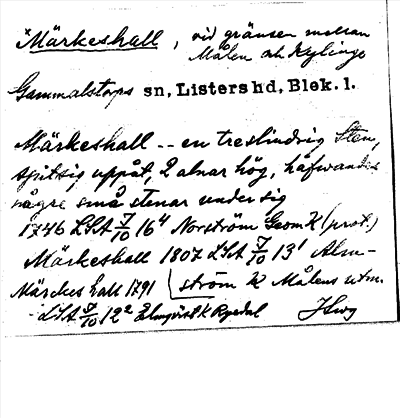 *Märkeshall, vid gränsen mellan
Målen och Kylinge
Gammalstorps sn, Listers hd, Blek. l.
Märkeshall -- en treslindrig Sten,
spitsig uppåt, 2 alnar hög, hafwandes
några små stenar under sig
1746 LSA 7/10 16⁴ Norström GeomK (prot.)
Märkeshall 1807 LSA 7/10 13¹ Alm-
ström K Målens utm.
Märckeshall 1791
LSA 7/10 12² Almqvist K Rysdal